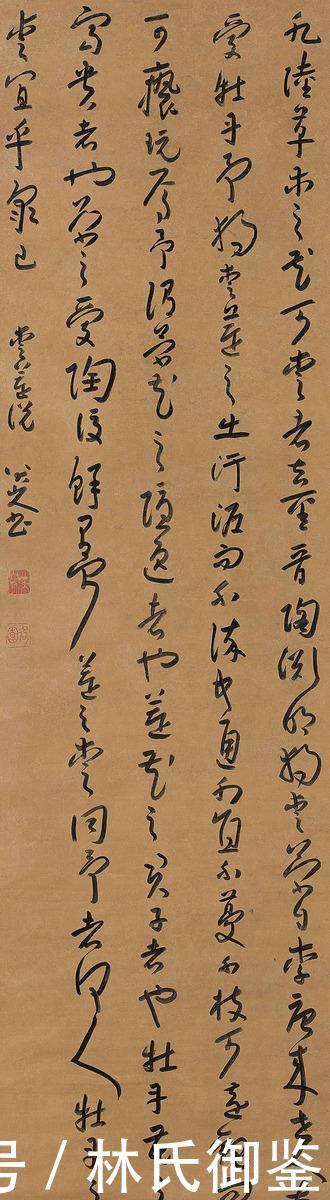 凡陸草木之花可愛者甚蕃晉陶淵明獨愛菊自李唐來世人甚
愛牡丹予獨愛蓮之出淤泥而不染中通外直不蔓不枝可遠觀
可褻玩焉予謂菊花之隱逸者也蓮花之君子者也牡丹花之
富貴者也菊之愛陶後鮮有聞蓮之愛同予者何人牡丹之
愛宜乎眾已 愛蓮說 八大山人書
号 / 林氏御鉴